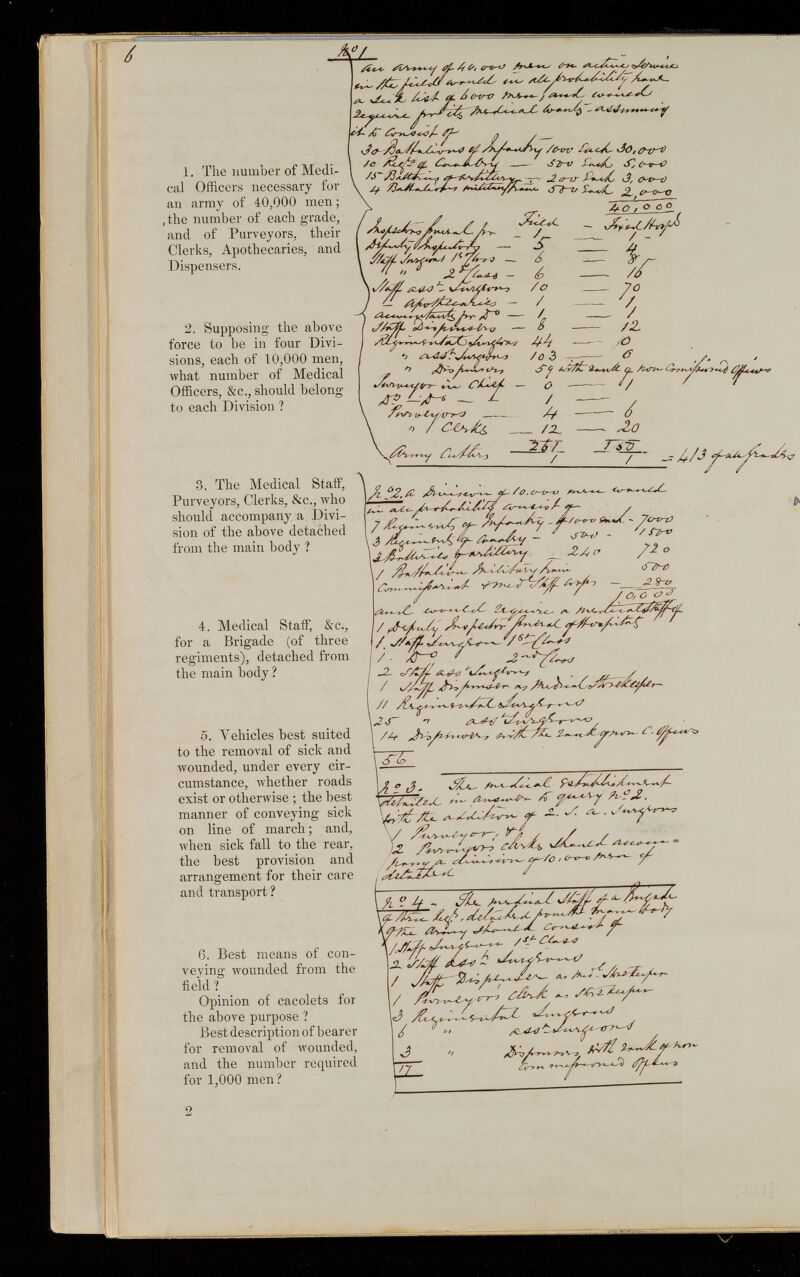 6
1. The number of Medi-
cal Officers necessary for
an army of 40,000 men;
the number of each grade,
and of Purveyors, their
Clerks, Apothecaries, and
Dispensers.
2. Supposing the above
force to be in four Divi-
sions, each of 10,000 men,
what number of Medical
Officers, &c., should belong
to each Division ?
3. The Medical Staff,
Purveyors, Clerks, &c., who
should accompany a Divi-
sion of the above detached
from the main body ?
4. Medical Staff, &c.,
for a Brigade (of three
regiments), detached from
the main body ?
5. Vehicles best suited
to the removal of sick and
wounded, under every cir-
cumstance, whether roads
exist or otherwise ; the best
manner of conveying sick
on line of march; and,
when sick fall to the rear,
the best provision and
arrangement for their care
and transport ?
6. Best means of con-
veying wounded from the
field ?
Opinion of cacolets for
the above purpose ?
Best description of bearer
for removal of wounded,
and the number required
for 1,000 men ?
2
No 1
An Army of 40,000 men on active Service
in the field would in all probability have
a Sick list of 6000 men / and would
require for its Medical wants - assuming
it to Consist of
30 Battalions of Infantry 1000 Each 30,000
10 Regts of Cavalry — 500 Each 5,000
15 Batteries of Artillery — 200 Each 3,000
4 Battalions military train 500 Each 2,000
40,000
Field — Fixed Hospls
Inspectors General for — 1 — 1
Deputy Inspectors — 5 — 4
Staff Surgeons 1st Class — 6 — 8
" 2d Class — 6 — 16
Staff asst Surgeons 10 — 70
Apothecaries — 1 — 1
accountants for Do — 1 — 1
Staff Dispensers — 8 — 12
Regimental Surgeons 44 — 0
" asst Surgeons 103 — 6
" Dispensers 59 with rank of non Commissioned Officers
Purveyor in Chief — 0 — 1
Do — Do — 1 —
Purveyors — 4 — 6
" / Clerks — 12 — 20
Army Cutlers 1 1 = 413 of all grades
No 2. A Division of 10,000 men would
in all probability consist of
7 Regiments of Infantry - of 1000 Each - 7000
3 Regiments of Cavalry — 500 - 1500
3 Batteries of Artillery — 240 720
1 Battalion Military train 500
Commissariat & med Staff Corps — 280
10,000
and would require a medical Staff of
1 Deputy Inspector General of Hospitals
1 Staff Surgeon 1st Class
1 Do 2nd Class
2 Staff asst Surgeons
1 Staff Dispenser as Medical Storekeeper
11 Regimental Surgeons
25 " asst Surgeons
14 Dispensers with the rank of non C. Officers
56
No 3. The medical Establishment
detailed in answer to query No 2.
with the addition of 2. S. a. Surgeons
1 Purveyor, &
2 Purveyors clerks should accom=
pany a division of 10,000 men if
detached
No 4 - The medical Staff of a Brigade
of three Regts, detached from the main body
of the Army should consist of
1 Staff Surgeon 1st Class
2 Staff Asst Surgeons
1 Staff Dispenser as Medl Storekeeper
1 Purveyors Clerk as Storekeeper
3 Regimental Surgeons
6 " asst Surgeons
3 " Dispensers with rank of non
Commissioned Officers
17